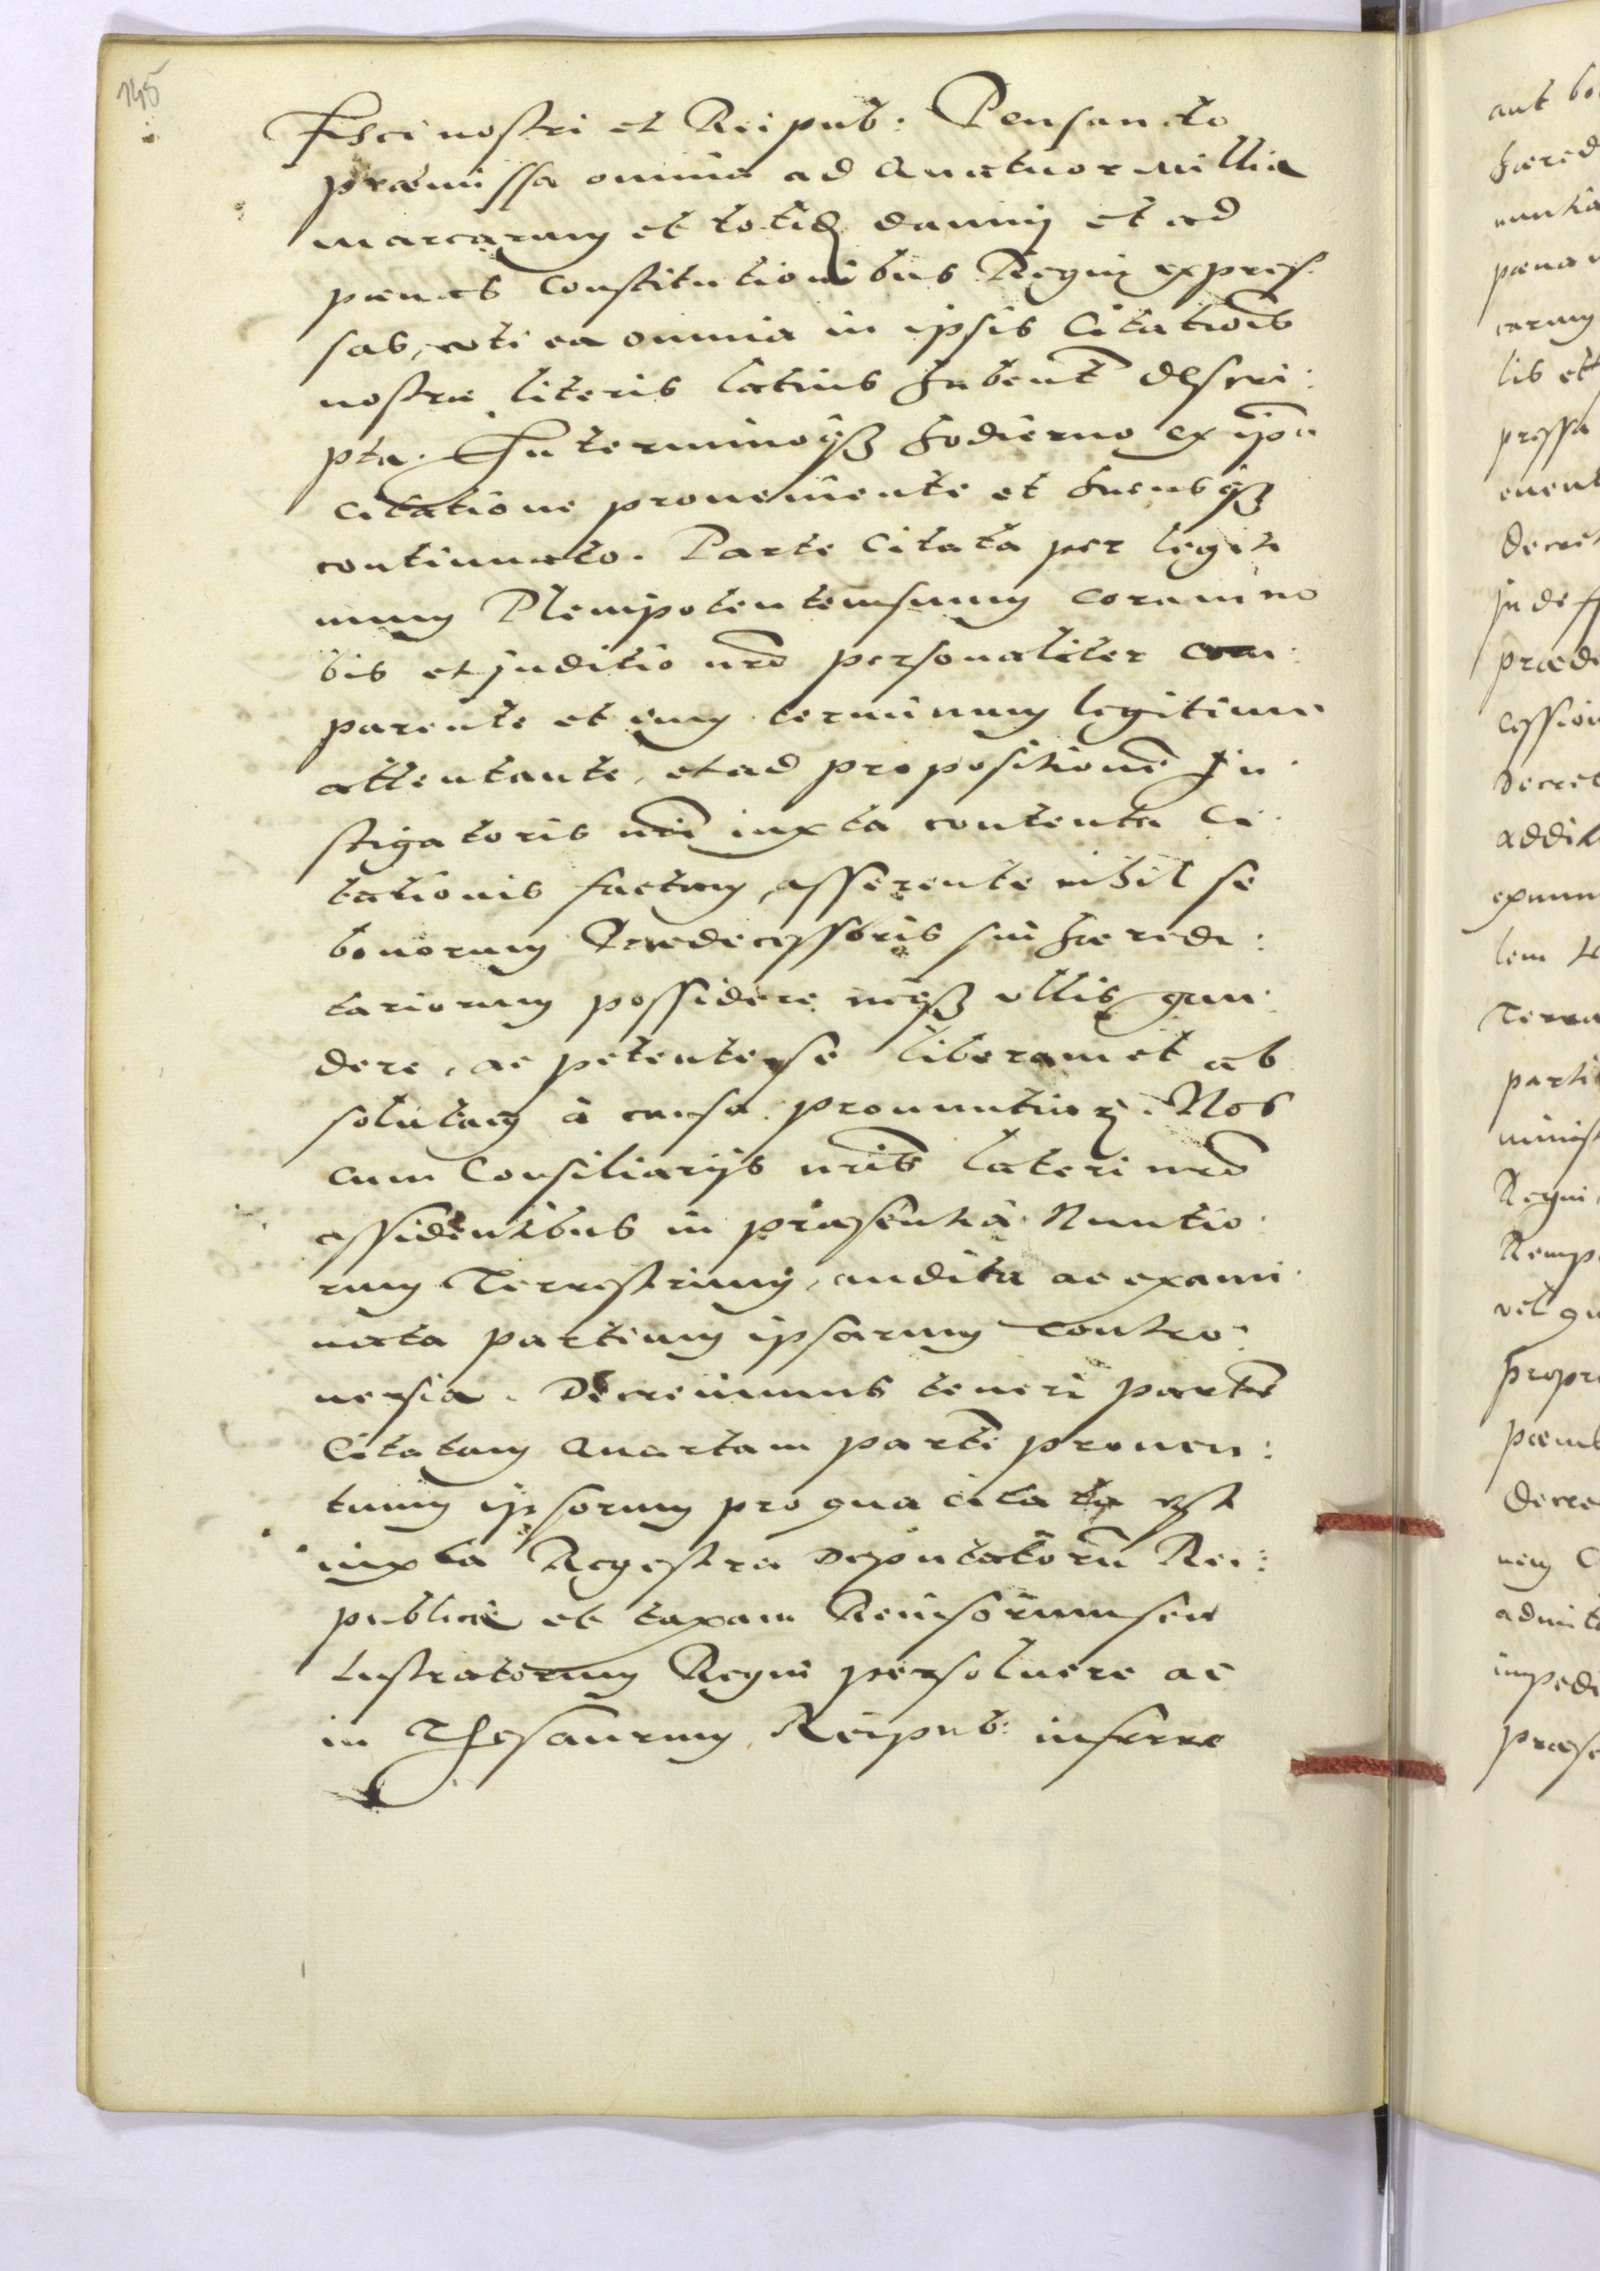 145
Fisci nostri et Reipub: Pensando
præmissa omnia ad Quatuor millia
marcarum et totidem damni et ad
pœnas Constitutionibus Regni expres
sas, uti ea omnia in ipsis Citationis
nostræ literis latius habent descri:
pta. In terminoque hodierno ex ipsa
Citatione proueniente et hucusque
continuato. Parte Citata per legiti
mum Plenipotentem suum coram no
bis et juditio nro personaliter com:
parente et eum terminum legitime
attentante, et ad propositionem In
stigatoris nri iuxta contenta Ci
tationis factam, asserente nihil se
bonorum Prædecessoris sui hæredi:
tariorum possidere neque ullis gau:
dere, ac petente se liberam et ab
solutam à causa pronuntiari. Nos
cum Consiliarijs nris lateri nro
assidentibus in præsentia Nuntio
rum Terrestrium, audita ac exami
nata partium ipsarum contro
uersia. Decreuimus teneri partem
Citatam Quartam partem prouen:
tuum ipsorum pro qua citata est
iuxta Regestra Deputatorum Rei:
publicæ et taxam Reuisorum seu
Lustratorum Regni persoluere ac
in Thesaurum Reipub: inferre
aut bo
hæred
nuntia
pœnam
carum
lis et
pressa
euent
Decret
prædi
cession
Decret
addit
exami
lem
Terra
parti
minist
Regni
Reip
vel qu
propri
Decre
admit
impedi
præse